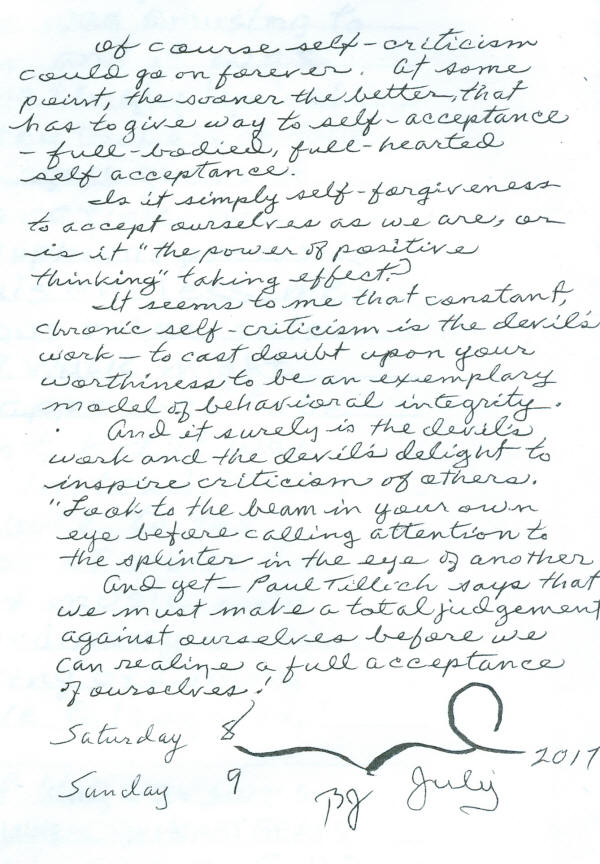 Of course self-criticism
could go on forever. At some
point, the sooner the better, that
has to give way to self-acceptance
- full-bodied, full-hearted
self acceptance.
Is it simply self-forgiveness
to accept ourselves as we are, or
is it "the power of positive
thinking" taking effect?
It seems to me that constant,
chronic self-criticism is the devil's
work - to cast doubt upon your
worthiness to be an exemplary
model of behavioral integrity.
And it surely is the devil's
work and the devil's delight to
inspire criticism of others.
"Look to the beam in your own
eye before calling attention to
the splinter in the eye of another
And yet - Paul Tillich says that
we must make a total judgement
against ourselves before we
can realize a full acceptance
of ourselves!
Saturday 8
2017
Sunday 9
July